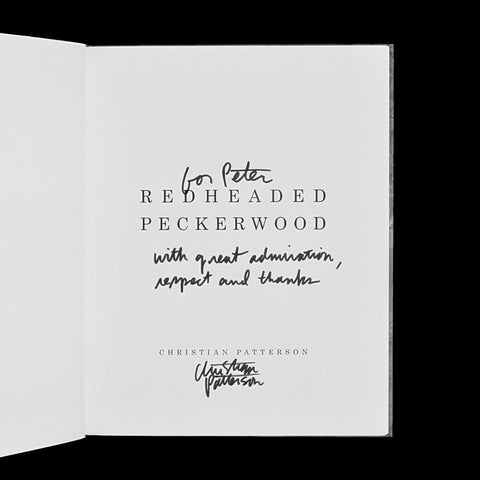 for Peter
REDHEADED
PECKERWOOD
with great admiration,
respect and thanks
CHRISTIAN PATTERSON
Christian
Patterson